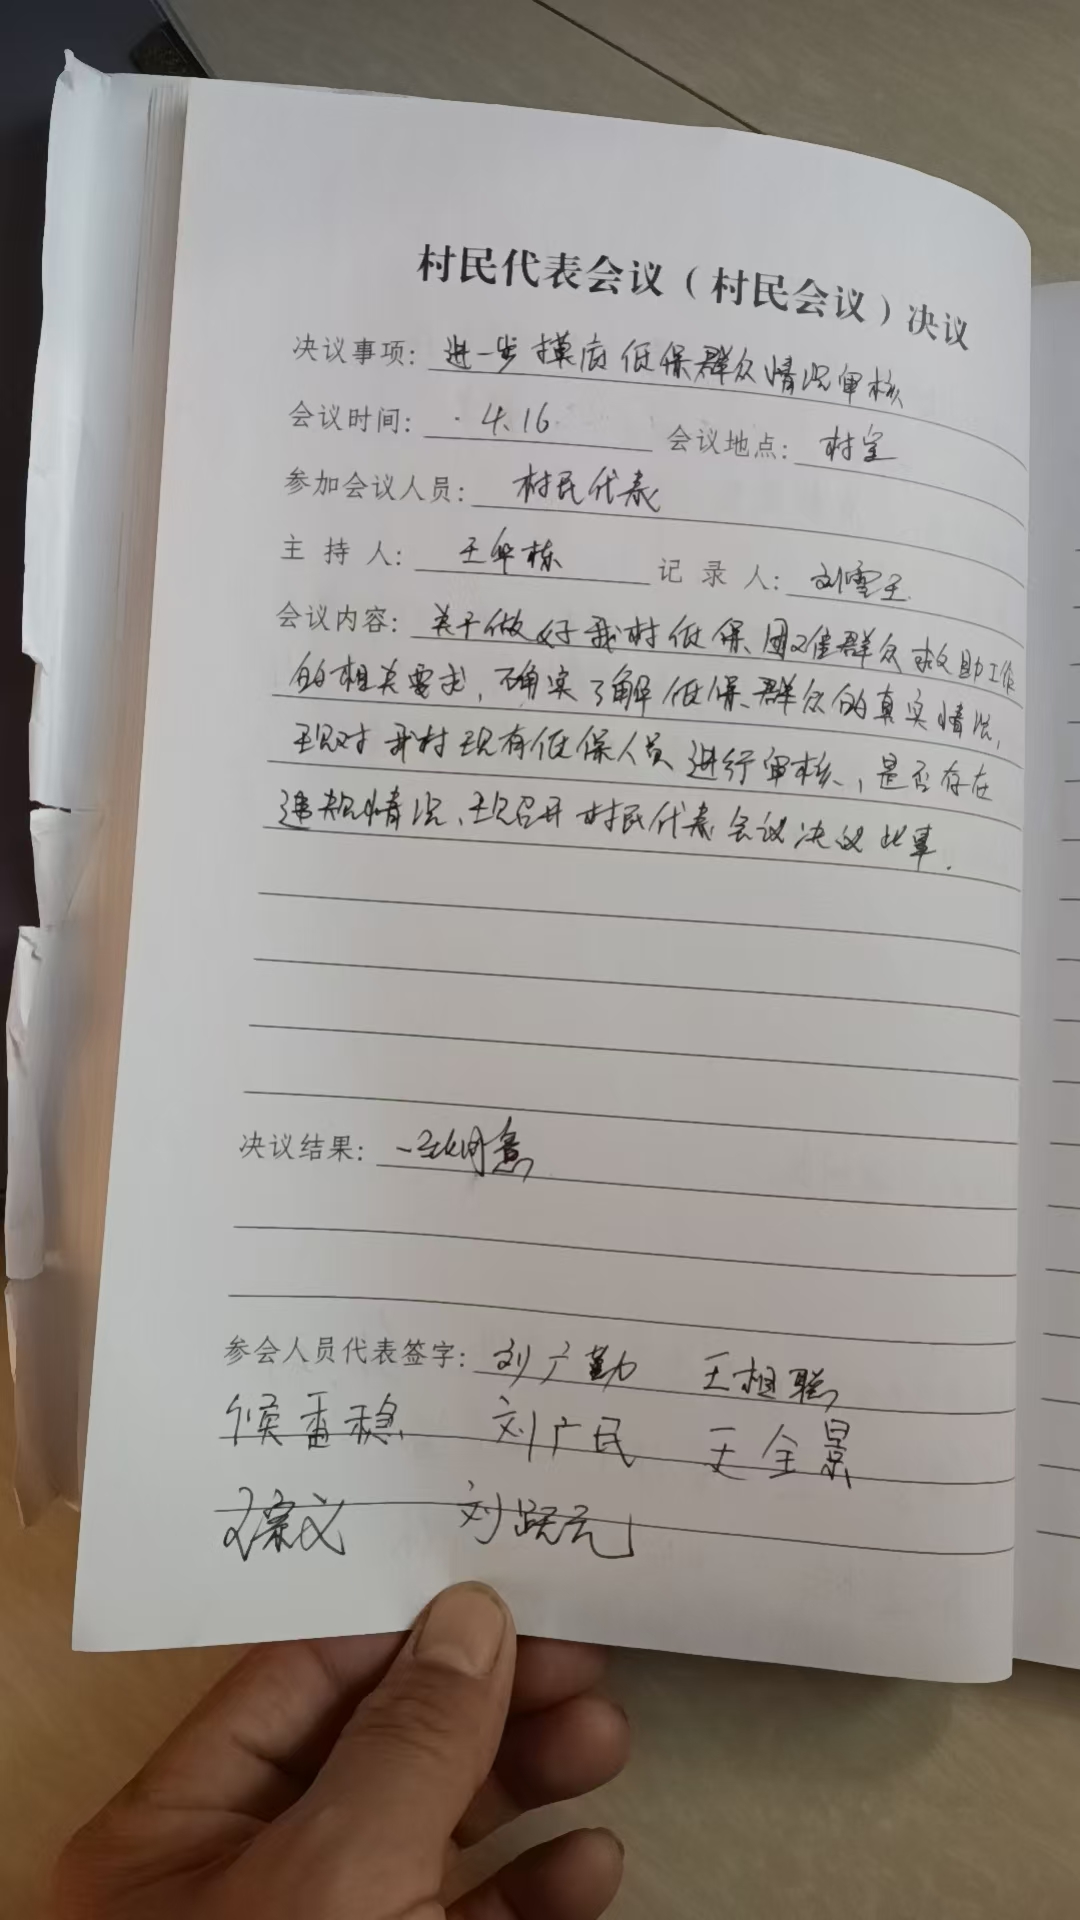 村民代表会议（村民会议）决议
决议事项：进一步摸底低保群众情况审核
会议时间：4.16 会议地点：村室
参加会议人员：村民代表
主持人：王华栋 记录人：刘雪玉
会议内容：关于做好我村低保、困难群众救助工作
的相关要求，确实了解低保、群众的真实情况，
现对我村现有低保人员进行审核、，是否存在
违规情况、现召开村民代表会议决议此事.
决议结果：一致同意
参会人员代表签字：刘广勤 王相聪
候番稳 刘广民 王全景
刘跃元